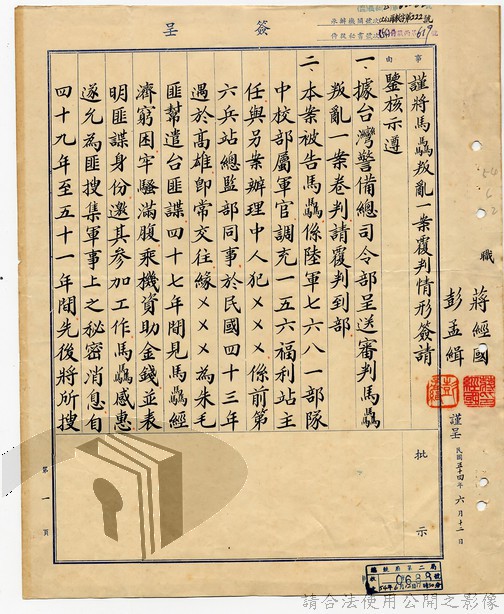 簽呈
承辦機關號次
侍從秘書號次
事由
謹將馬驫叛亂一案覆判情形簽請
鑒核示遵
職 蔣經國
彭孟緝
謹呈
民國五十四年六月十二日
一、據台灣警備總司令部呈送審判馬驫
叛亂一案卷判請覆判到部
二、本案被告馬驫係陸軍七六八一部隊
中校部屬軍官調充一五六福利站主
任與另案辦理中人犯×××係前第
六兵站總監部同事於民國四十三年
遇於高雄卽常交往緣×××為朱毛
匪幫遣台匪諜四十七年間見馬驫經
濟窮困牢騷滿腹乘機資助金錢並表
明匪諜身份邀其參加工作馬驫感惠
遂允為匪搜集軍事上之秘密消息自
四十九年至五十一年間先後將所搜
批示
第一頁
總統府第二局
請合法使用公開之影像